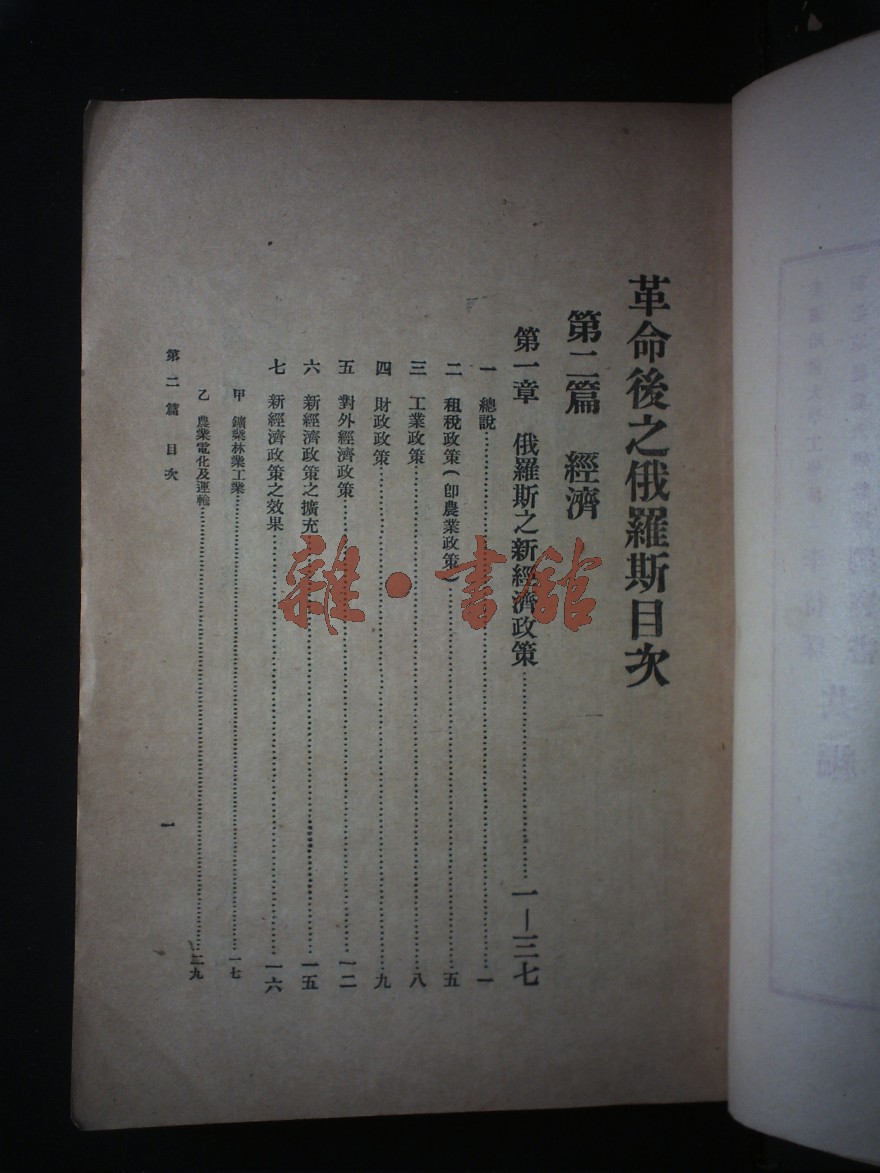 革命後之俄羅斯目次
第二篇　經濟
第一章　俄羅斯之新經濟政策……一—三七
一　總說……一
二　租稅政策（卽農業政策）……五
三　工業政策……八
四　財政政策……九
五　對外經濟政策……一二
六　新經濟政策之擴充……一五
七　新經濟政策之效果……一六
甲　鑛業林業工業……一七
乙　農業電化及運輸……二九
第二篇　目次
一
雜·書館